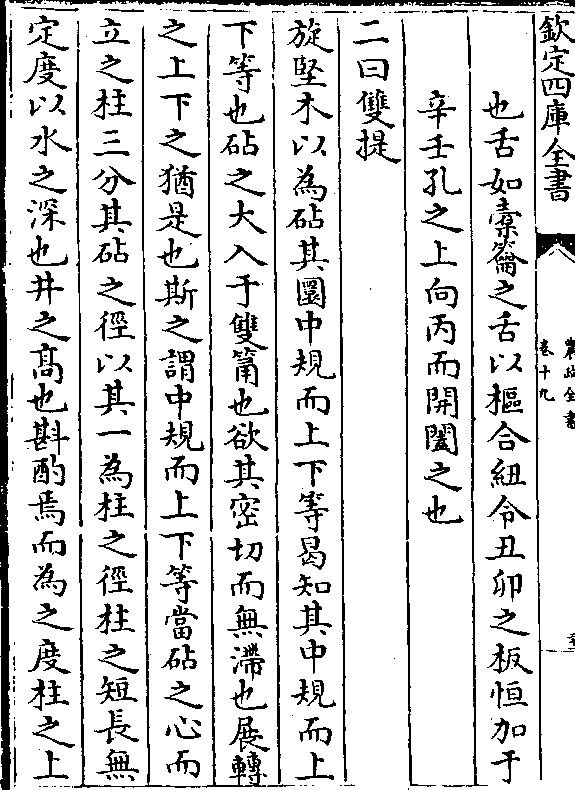 欽定四庫全書
農政全書
卷十九
也舌如橐籥之舌以樞合紐令丑卯之板恒加于
辛壬孔之上向丙而開闔之也
二曰雙提
旋堅木以為砧其圜中規而上下等曷知其中規而上
下等也砧之大入于雙筩也欲其密切而無滯也展轉
之上下之猶是也斯之謂中規而上下等當砧之心而
立之柱三分其砧之徑以其一為柱之徑柱之短長無
定度以水之深也井之髙也斟酌焉而為之度柱之上